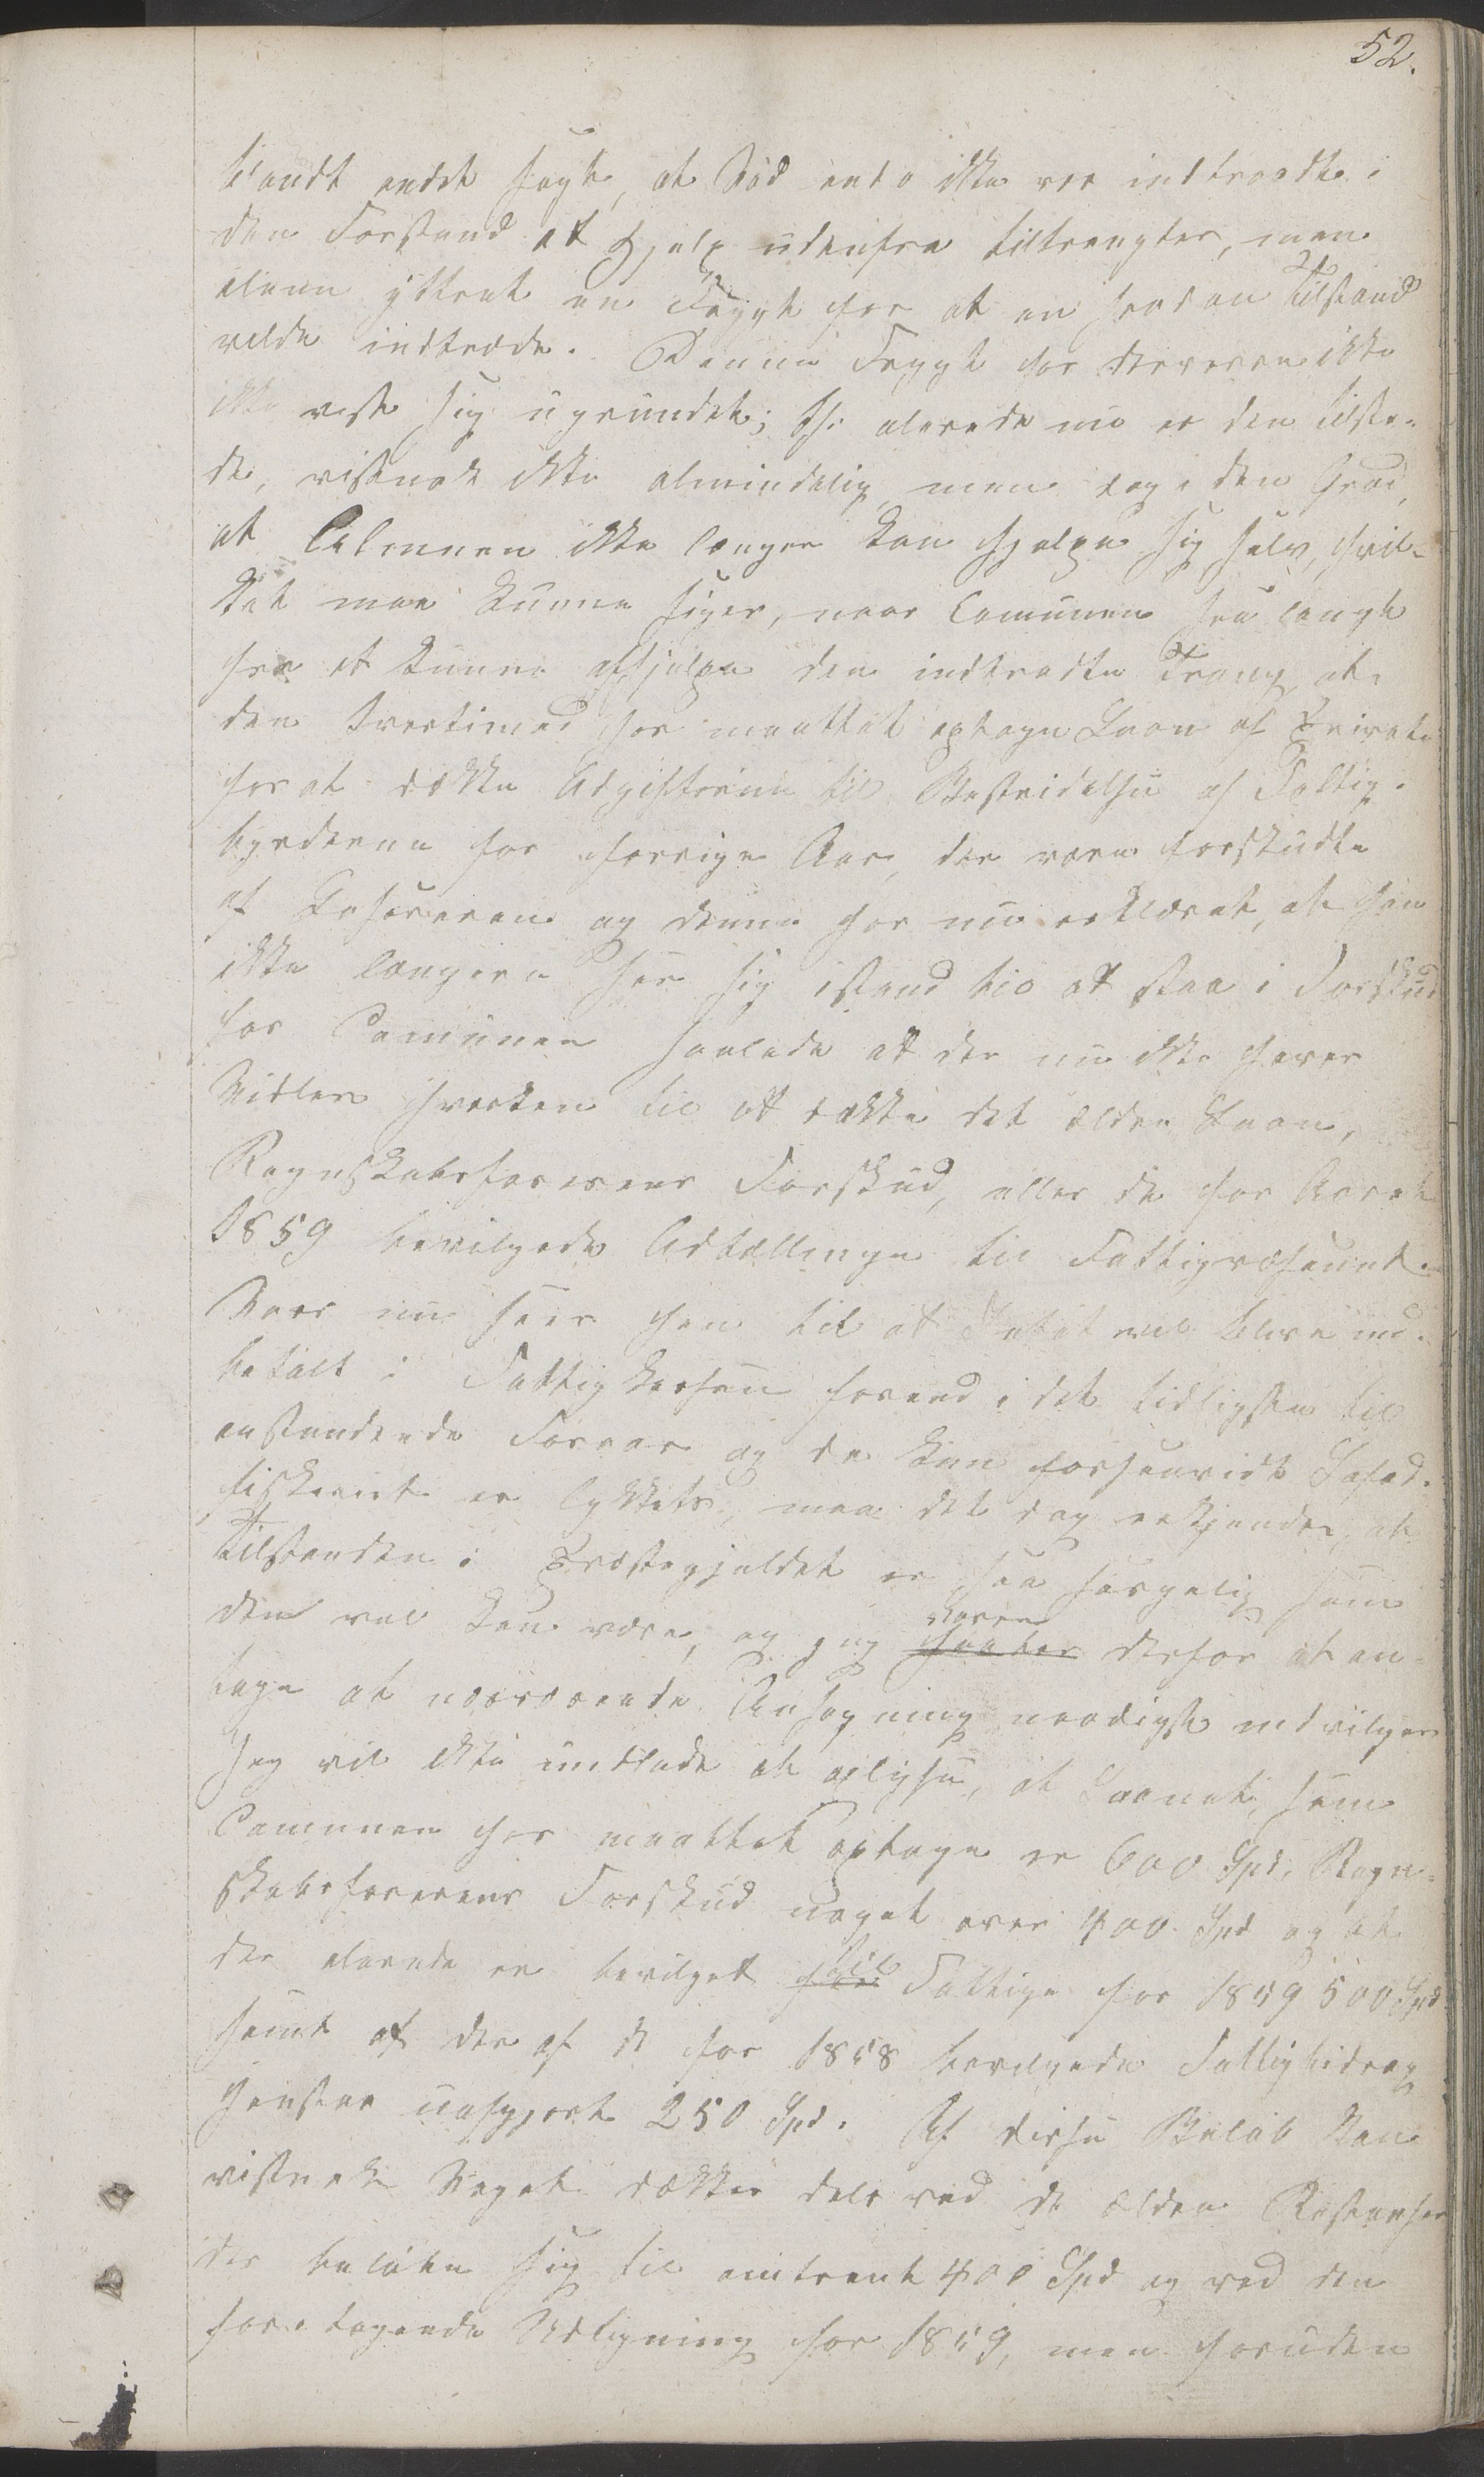 52.
blandt andet sagt, at Nød endo ikke var indtraadt i
den Forstand at Hjelp udenfra tiltrengtes, men
alene yttret en Frygt for at en saadan Tilstand
vilde indtræde. Denne Frygt har desværre ikke
ikke vist sig ugrundet; thi alerede nu er den tilste-
de, vistnok ikke almindelig, men dog i den Grad,
at Almuen ikke længer kan hjelpe sig selv, hvil-
ket maa kunne siges, naar Comunen saa langt
fra at kunne afhjelpe den indtradte Trang, at
den tvertimod har maattet optage Laan af Private
for at dække Udgifterne til Bestridelse af Fattig-
byrderne for forrige Aar, der vare forskudte
af Casereren og denne har nu erklæret, at han
ikke længere ser sig istand til at staa i Forskud
for Comunen saalede at der nu ikke haves
Midler hverken til at dække det ældre Laan,
Regnskabsførerens Forskud, eller de for Aaret
1859 bevilgede Udtællinge til Fattigvæsenet.
Naar nu sees hen til at Intet vil blive ind-
betalt i Fattigkassen førend i det tidligste til
anstundende Foraar og da kun forsaavidt Lofod-
fiskeriet er lykkets, maa det dog erkjendes, at
Tilstanden i Præstegjeldet er saa sørgelig som
den vel kan være, og jeg vover derfor at an-
tage at nærværende Ansøgning naadigst indvilges
Jeg vil ikke undlade at oplyse, at Laanet, som
Comunen har maattet optage er 600 Spd, Regn-
skabsførerens Forskud noget over 400 Spd og at
der alerede er bevilget til Fattige for 1859 500 Spd
samt at der af de for 1858 bevilgede Fattigbidrag
henstaa uafgjort 250 Spd. Af disse Beløb kan
vistnok Noget dækkes dels ved de ældre Restanser
der beløbe sig til omtrent 400 Spd og ved den
foretagende Udligning for 1859, men foruden